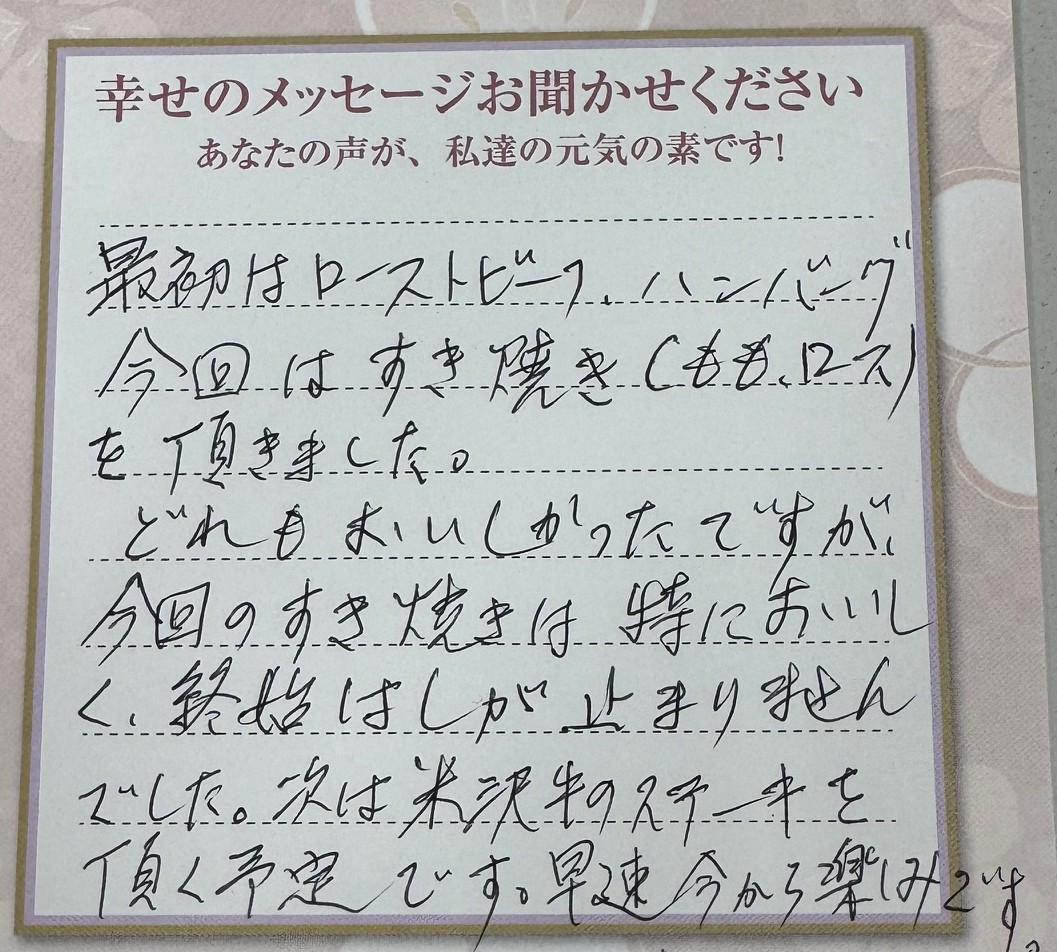 幸せのメッセージお聞かせください
あなたの声が、私達の元気の素です!
最初はローストビーフ、ハンバーグ
今回はすき焼き(もも、ロース)
を頂きました。
どれもおいしかったですが、
今回のすき焼きは特においし
く、終始はしが止まりません
でした。次は米沢牛のステーキを
頂く予定です。早速今から楽しみです。